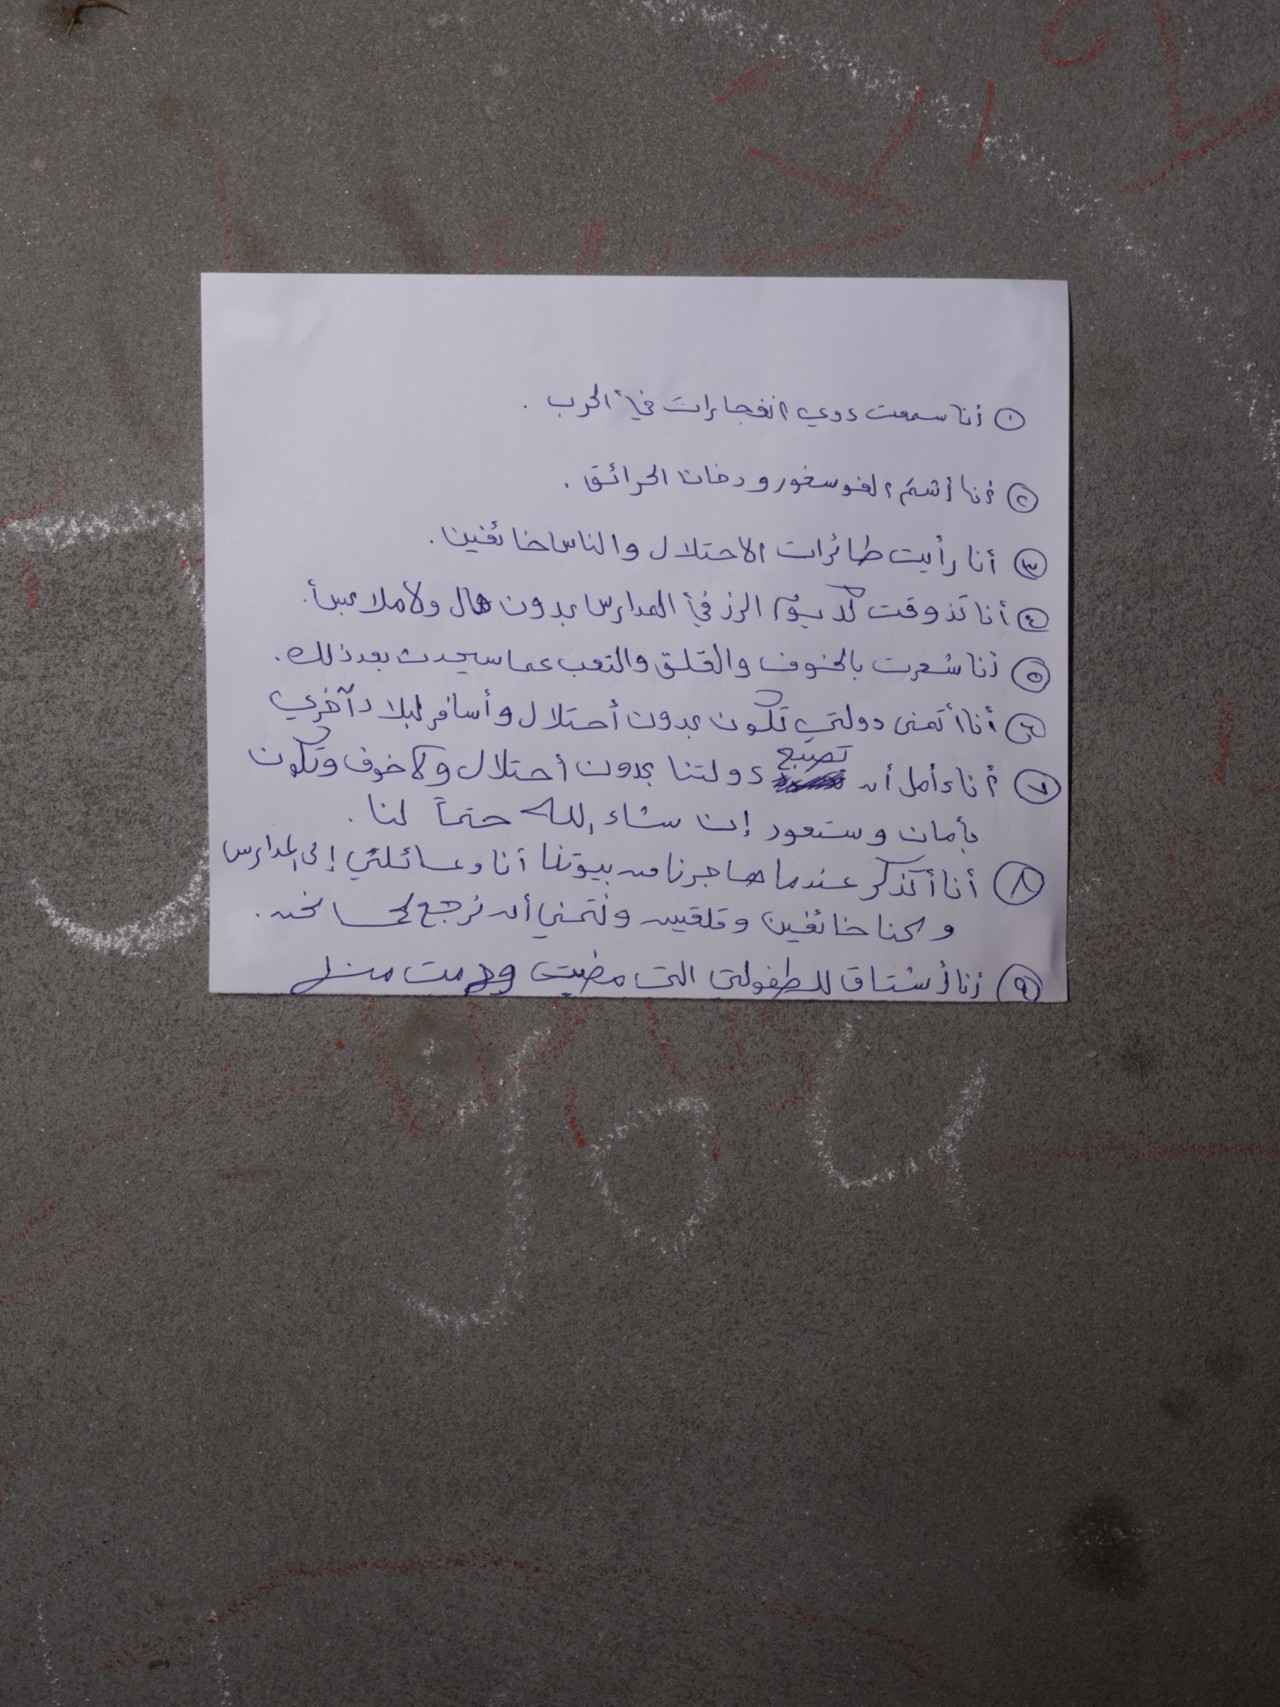 ١ أنا سمعت دوي انفجارات في الحرب .
٢ أنا أشتم الفوسفور ودخان الحرائق .
٣ أنا رأيت طائرات الاحتلال والناس خائفين .
٤ أنا تذوقت كل يوم الرز في المدارس بدون مال ولا ملابس .
٥ أنا شعرت بالخوف والقلق والتعب عما سيحدث بعد ذلك .
٦ أنا أتمنى دولتي تكون بدون أحتلال وأسافر لبلاد آخرى
٧ أنا أمل أن تصبح دولتنا بدون أحتلال ولا خوف وتكون
بأمان وستعود إن شاء الله حتماً لنا .
٨ أنا أتذكر عندما هاجرنا من بيوتنا أنا وعائلتي إلى المدارس
وكنا خائفين وقلقين ونتمنى أن نرجع
٩ أنا أشتاق للطفولتى التى مضيت